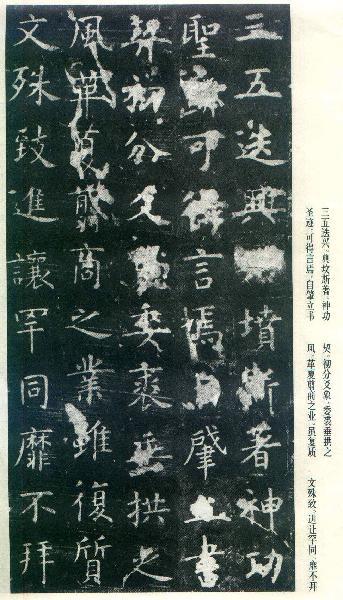 三五迭興墳斯著神功
聖迹可得言焉自肇立書
契初分爻象委裘垂拱之
風革夏翦商之業雖復質
文殊致進讓罕同靡不拜
三五迭兴，典坟斯著，神功
圣迹，可得言焉。自肇立书
契，初分爻象，委裘垂拱之
风，革夏翦商之业，虽复质
文殊致，进让罕同，靡不